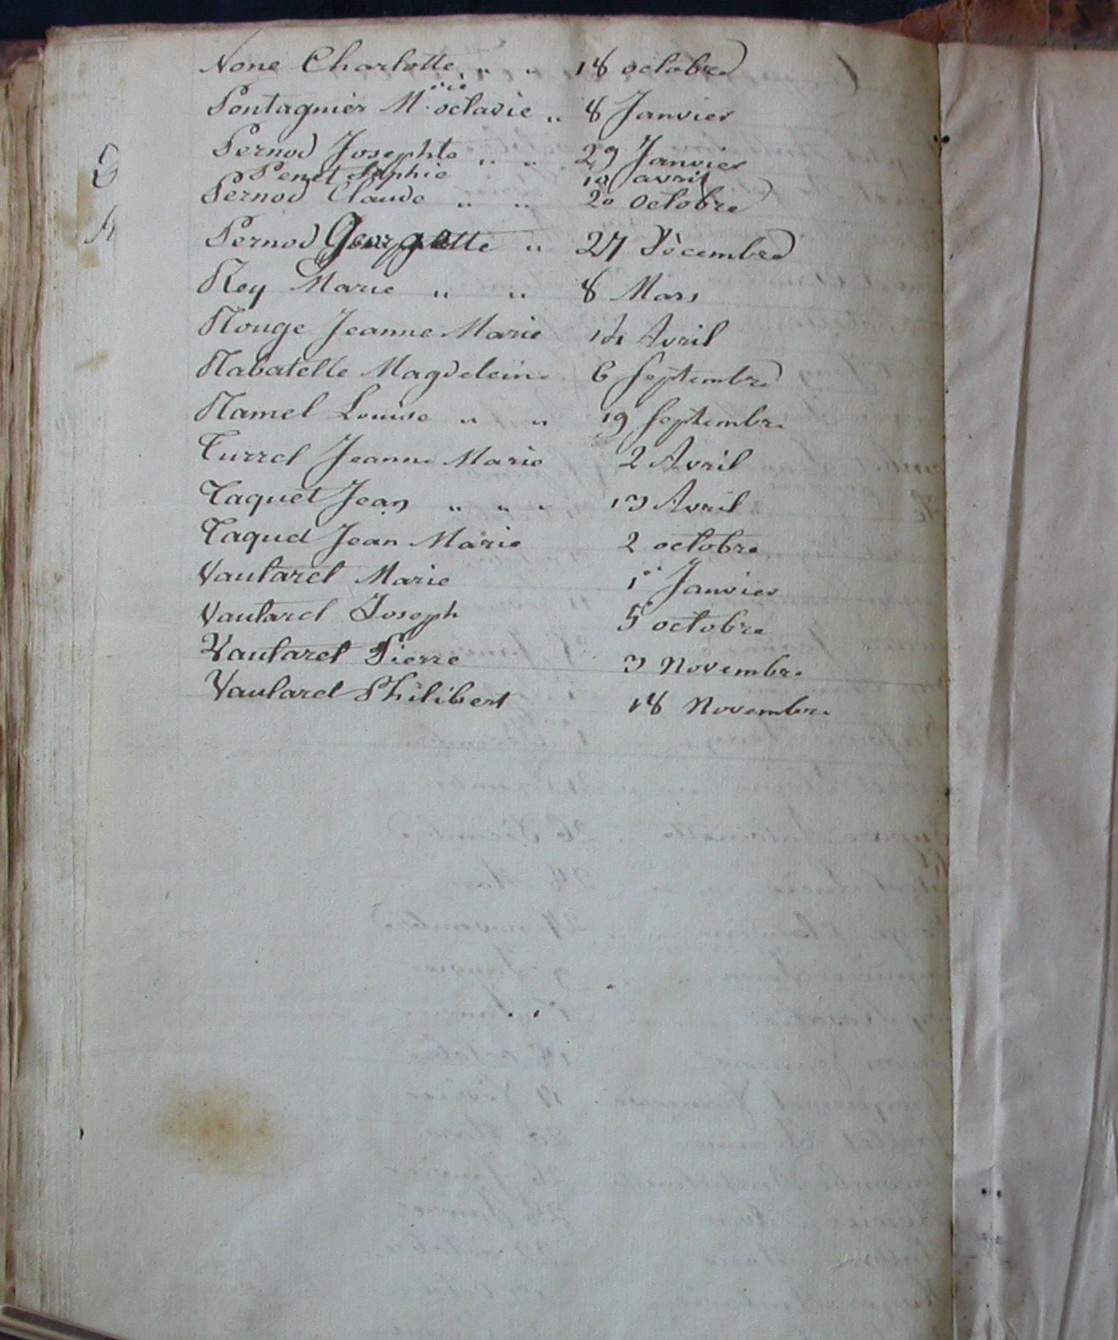 None Charlotte „ „ 18 octobre
Pontagnier Mie octavie „ 8 Janvier
Pernod Josephte „ „ 29 Janvier
Penet Sophie 10 avril
Pernod Claude „ „ 20 octobre
Pernod Georgette „ 27 Décembre
Rey Marie „ „ 8 Mars
Rouge Jeanne Marie 14 Avril
Rabatelle Magdeleine 6 Septembre
Ramel Louise „ „ 19 Septembre
Turrel Jeanne Marie 2 Avril
Taquet Jean „ „ „ 13 Avril
Taquet Jean Marie 2 octobre
Vautaret Marie 1er Janvier
Vautaret Joseph 5 octobre
Vautaret Pierre 3 Novembre
Vautaret Philibert 18 Novembre